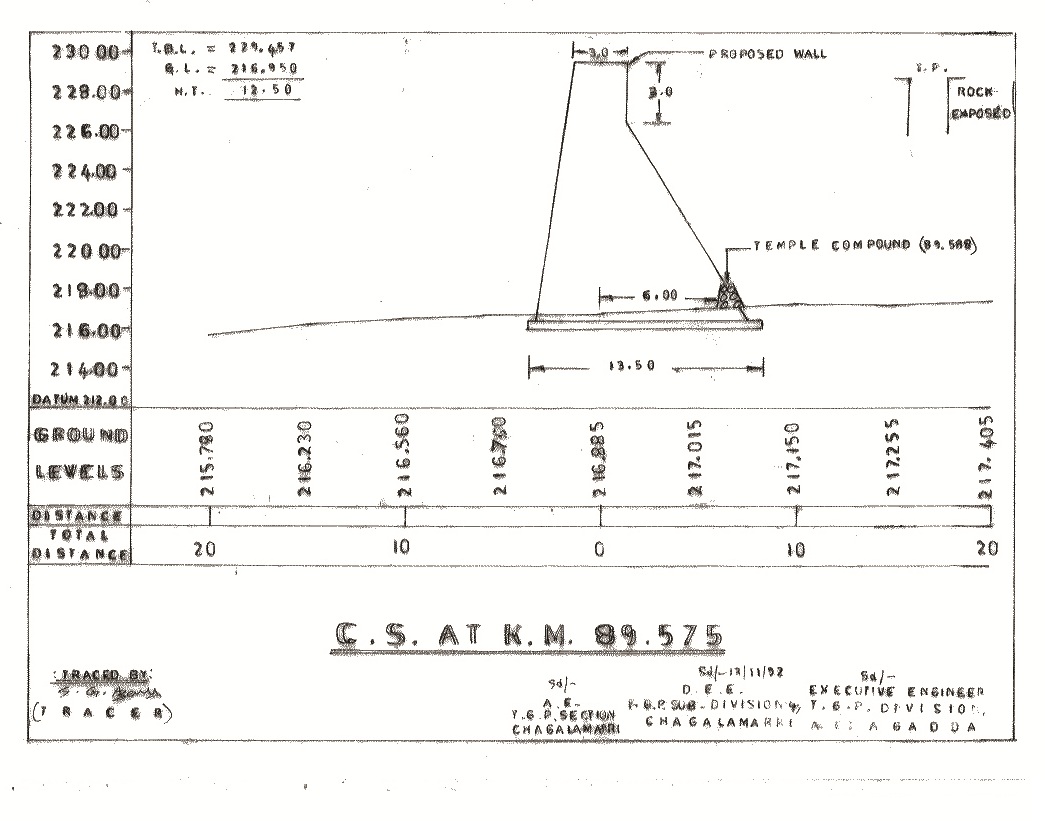 T.B.L. = 229.457
G.L. = 216.950
H.T. 12.50
230.00
228.00
226.00
224.00
222.00
220.00
218.00
216.00
214.00
DATUM 212.00
3.0
PROPOSED WALL
3.0
T.P.
ROCK
EXPOSED
TEMPLE COMPOUND (89.588)
6.00
13.50
GROUND
LEVELS
215.780 216.230 216.560 216.885 217.015 217.150 217.255 217.405
DISTANCE
TOTAL
DISTANCE
20 10 0 10 20
C.S. AT K.M. 89.575
:TRACED BY:
S. G.
(TRACER)
Sd/-
A.E.
T.G.P. SECTION
CHAGALAMARRI
Sd/-13/11/92
D.E.E.
SUB-DIVISION
CHAGALAMARRI
Sd/-
EXECUTIVE ENGINEER
T.G.P. DIVISION,